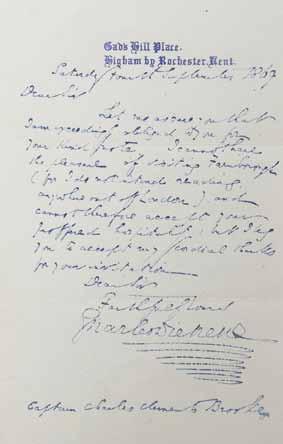 Gad's Hill Place,
Higham by Rochester, Kent.
Saturday Fourth September
Dear Sir
Let me assure you that
I am exceedingly obliged to you for
your kind note. I cannot have
the pleasure of visiting Farnborough
(for I do not intend reading
anywhere out of London) and
cannot therefore accept your
proffered hospitality; but I beg
you to accept my cordial thanks
for your invitation.
Dear Sir
Faithfully Yours
Charles Dickens
Captain Charles Clements Brooke